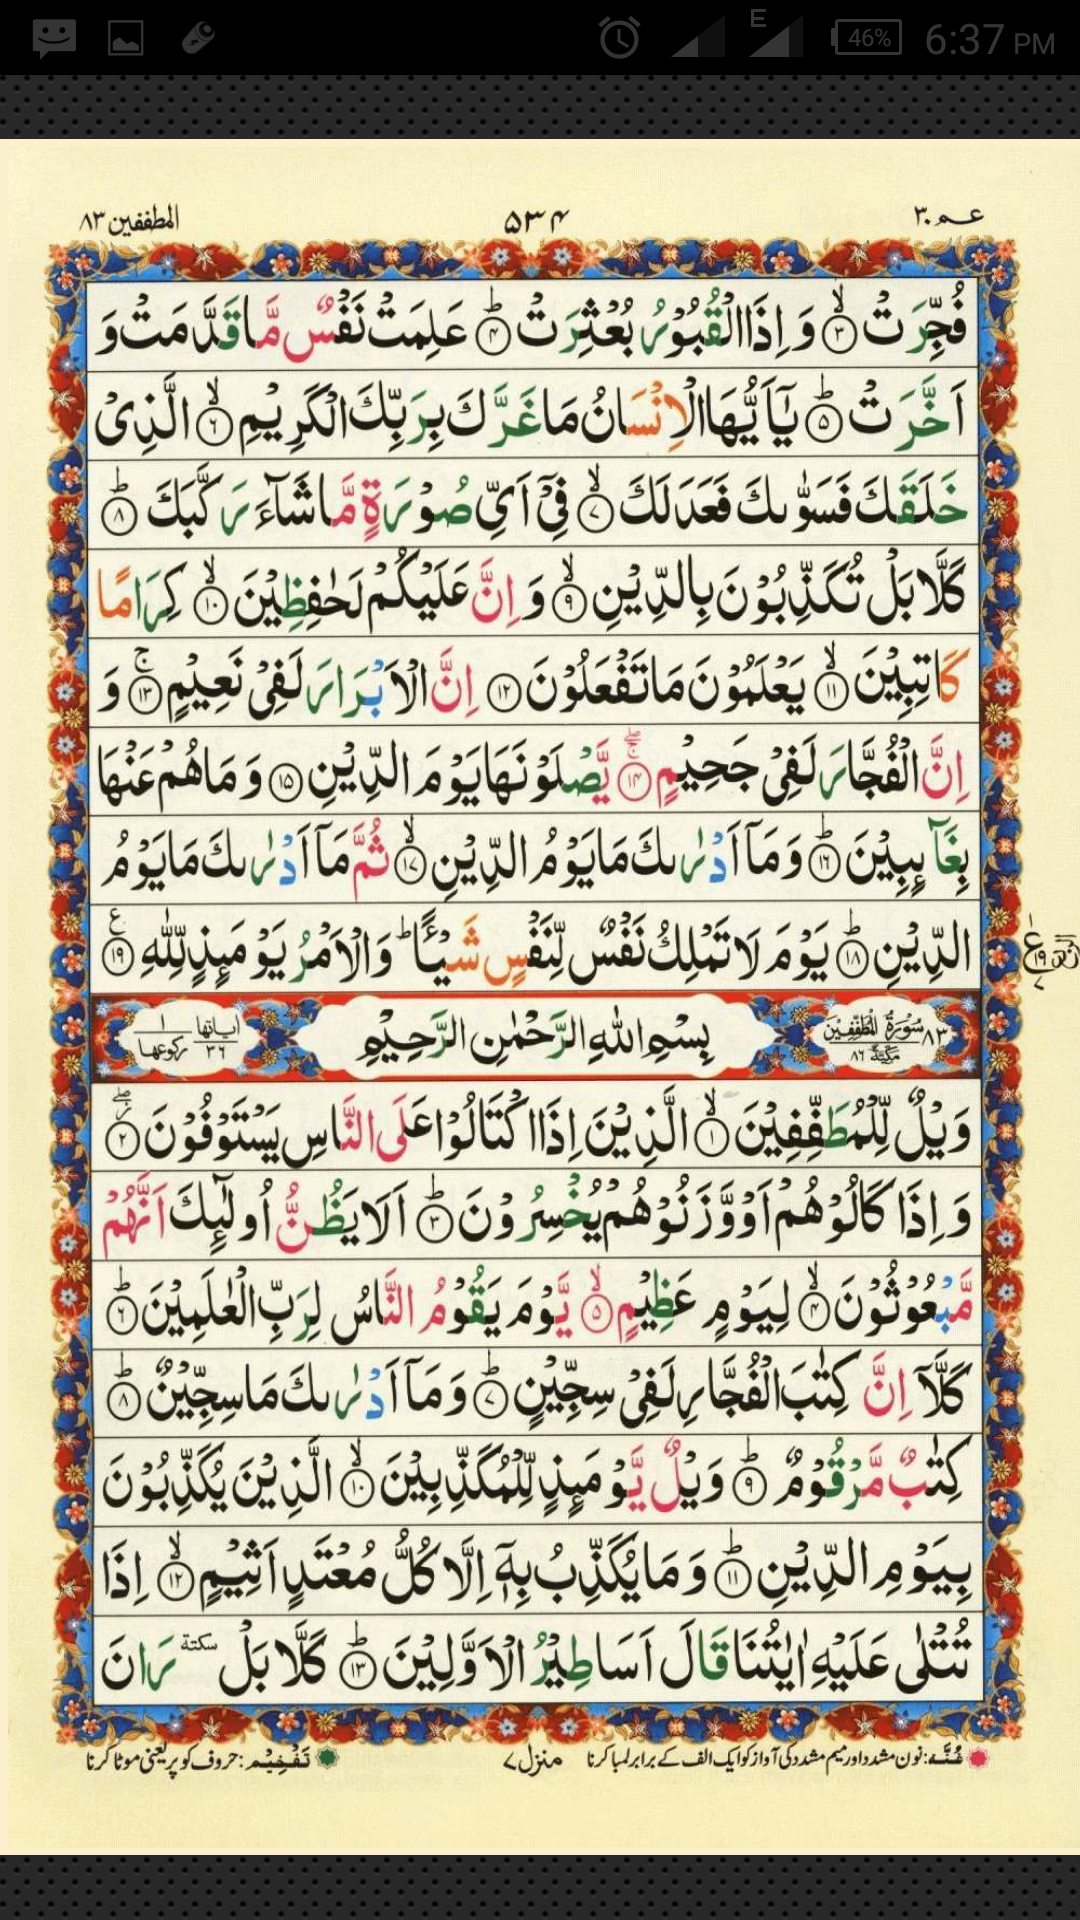 46% 6:37 PM
E
عم ٣٠ ۵۳۴ المطففين ٨٣
فُجِّرَتْ ۙ﴿۳﴾ وَ اِذَا الْقُبُوْرُ بُعْثِرَتْ ؕ﴿۴﴾ عَلِمَتْ نَفْسٌ مَّا قَدَّمَتْ وَ
اَخَّرَتْ ؕ﴿۵﴾ يٰۤاَيُّهَا الْاِنْسَانُ مَا غَرَّكَ بِرَبِّكَ الْكَرِيْمِ ۙ﴿۶﴾ الَّذِيْ
خَلَقَكَ فَسَوّٰىكَ فَعَدَلَكَ ۙ﴿۷﴾ فِيْۤ اَيِّ صُوْرَةٍ مَّا شَآءَ رَكَّبَكَ ؕ﴿۸﴾
كَلَّا بَلْ تُكَذِّبُوْنَ بِالدِّيْنِ ۙ﴿۹﴾ وَ اِنَّ عَلَيْكُمْ لَحٰفِظِيْنَ ۙ﴿۱۰﴾ كِرَامًا
كَاتِبِيْنَ ۙ﴿۱۱﴾ يَعْلَمُوْنَ مَا تَفْعَلُوْنَ ﴿۱۲﴾ اِنَّ الْاَبْرَارَ لَفِيْ نَعِيْمٍ ۚ﴿۱۳﴾ وَ
اِنَّ الْفُجَّارَ لَفِيْ جَحِيْمٍ ۚۖ﴿۱۴﴾ يَّصْلَوْنَهَا يَوْمَ الدِّيْنِ ﴿۱۵﴾ وَ مَا هُمْ عَنْهَا
بِغَآئِبِيْنَ ؕ﴿۱۶﴾ وَ مَاۤ اَدْرٰىكَ مَا يَوْمُ الدِّيْنِ ۙ﴿۱۷﴾ ثُمَّ مَاۤ اَدْرٰىكَ مَا يَوْمُ
الدِّيْنِ ؕ﴿۱۸﴾ يَوْمَ لَا تَمْلِكُ نَفْسٌ لِّنَفْسٍ شَيْـًٔا ؕ وَ الْاَمْرُ يَوْمَئِذٍ لِّلّٰهِ ﴿۱۹﴾ ع
٨٣ سُوْرَةُ الْمُطَفِّفِيْنَ مَكِّيَّةٌ ٨٦ بِسْمِ اللّٰهِ الرَّحْمٰنِ الرَّحِيْمِ اٰیاتها ٣٦ ركوعها ١
وَيْلٌ لِّلْمُطَفِّفِيْنَ ۙ﴿۱﴾ الَّذِيْنَ اِذَا اكْتَالُوْا عَلَى النَّاسِ يَسْتَوْفُوْنَ ﴿۲﴾
وَ اِذَا كَالُوْهُمْ اَوْ وَّزَنُوْهُمْ يُخْسِرُوْنَ ؕ﴿۳﴾ اَلَا يَظُنُّ اُولٰٓئِكَ اَنَّهُمْ
مَّبْعُوْثُوْنَ ۙ﴿۴﴾ لِيَوْمٍ عَظِيْمٍ ۙ﴿۵﴾ يَّوْمَ يَقُوْمُ النَّاسُ لِرَبِّ الْعٰلَمِيْنَ ؕ﴿۶﴾
كَلَّاۤ اِنَّ كِتٰبَ الْفُجَّارِ لَفِيْ سِجِّيْنٍ ؕ﴿۷﴾ وَ مَاۤ اَدْرٰىكَ مَا سِجِّيْنٌ ؕ﴿۸﴾
كِتٰبٌ مَّرْقُوْمٌ ؕ﴿۹﴾ وَيْلٌ يَّوْمَئِذٍ لِّلْمُكَذِّبِيْنَ ۙ﴿۱۰﴾ الَّذِيْنَ يُكَذِّبُوْنَ
بِيَوْمِ الدِّيْنِ ؕ﴿۱۱﴾ وَ مَا يُكَذِّبُ بِهٖۤ اِلَّا كُلُّ مُعْتَدٍ اَثِيْمٍ ۙ﴿۱۲﴾ اِذَا
تُتْلٰى عَلَيْهِ اٰيٰتُنَا قَالَ اَسَاطِيْرُ الْاَوَّلِيْنَ ؕ﴿۱۳﴾ كَلَّا بَلْ سكتة رَانَ
غُنَّه: نون مشدد اور میم مشدد کی آواز کو ایک الف کے برابر لمبا کرنا منزل ۷ تَفْخِیْم: حروف کو پر یعنی موٹا کرنا